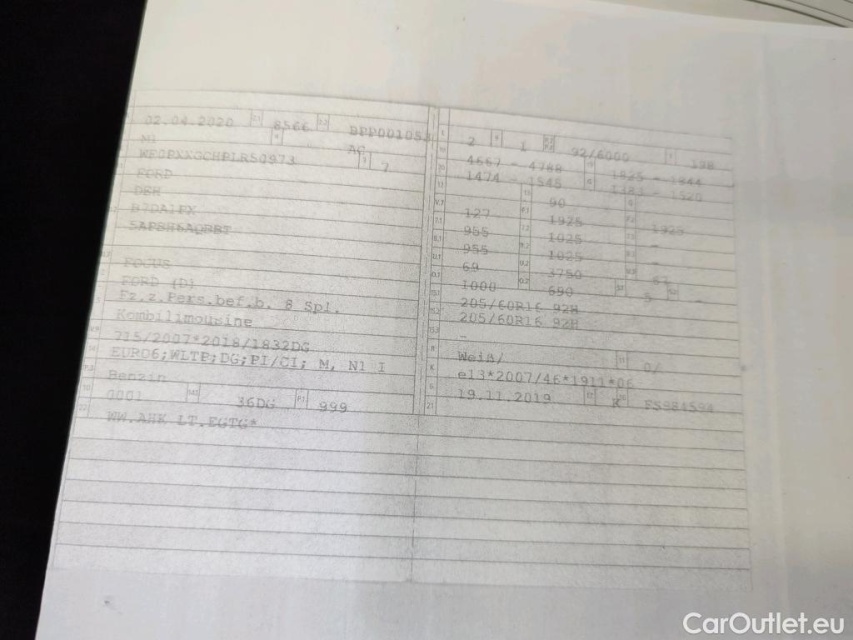 02.04.2020 8566 BPP00105
M1 AC
WF0PXXGCHPLR50973 7
FORD
DEH
B7DA1FX
5AFBH6AQBBT
FOCUS
FORD (D)
Fz.z.Pers.bef.b. 8 Spl.
Kombilimousine
715/2007*2018/1832DG
EURO6;WLTP;DG;PI/CI; M, N1 I
Benzin
0001 36DG 999
WW.AHK LT.EGTG*
2 1 92/6000 198
4667 - 4788 1825 - 1844
1474 - 1545 1383 - 1520
90
127 1925 1925
955 1025 -
955 1025 -
69 3750 67
1000 690 5 -
205/60R16 92H
205/60R16 92H
-
Weiß/ 0/
e13*2007/46*1911*06
19.11.2019 K FS984594
CarOutlet.eu